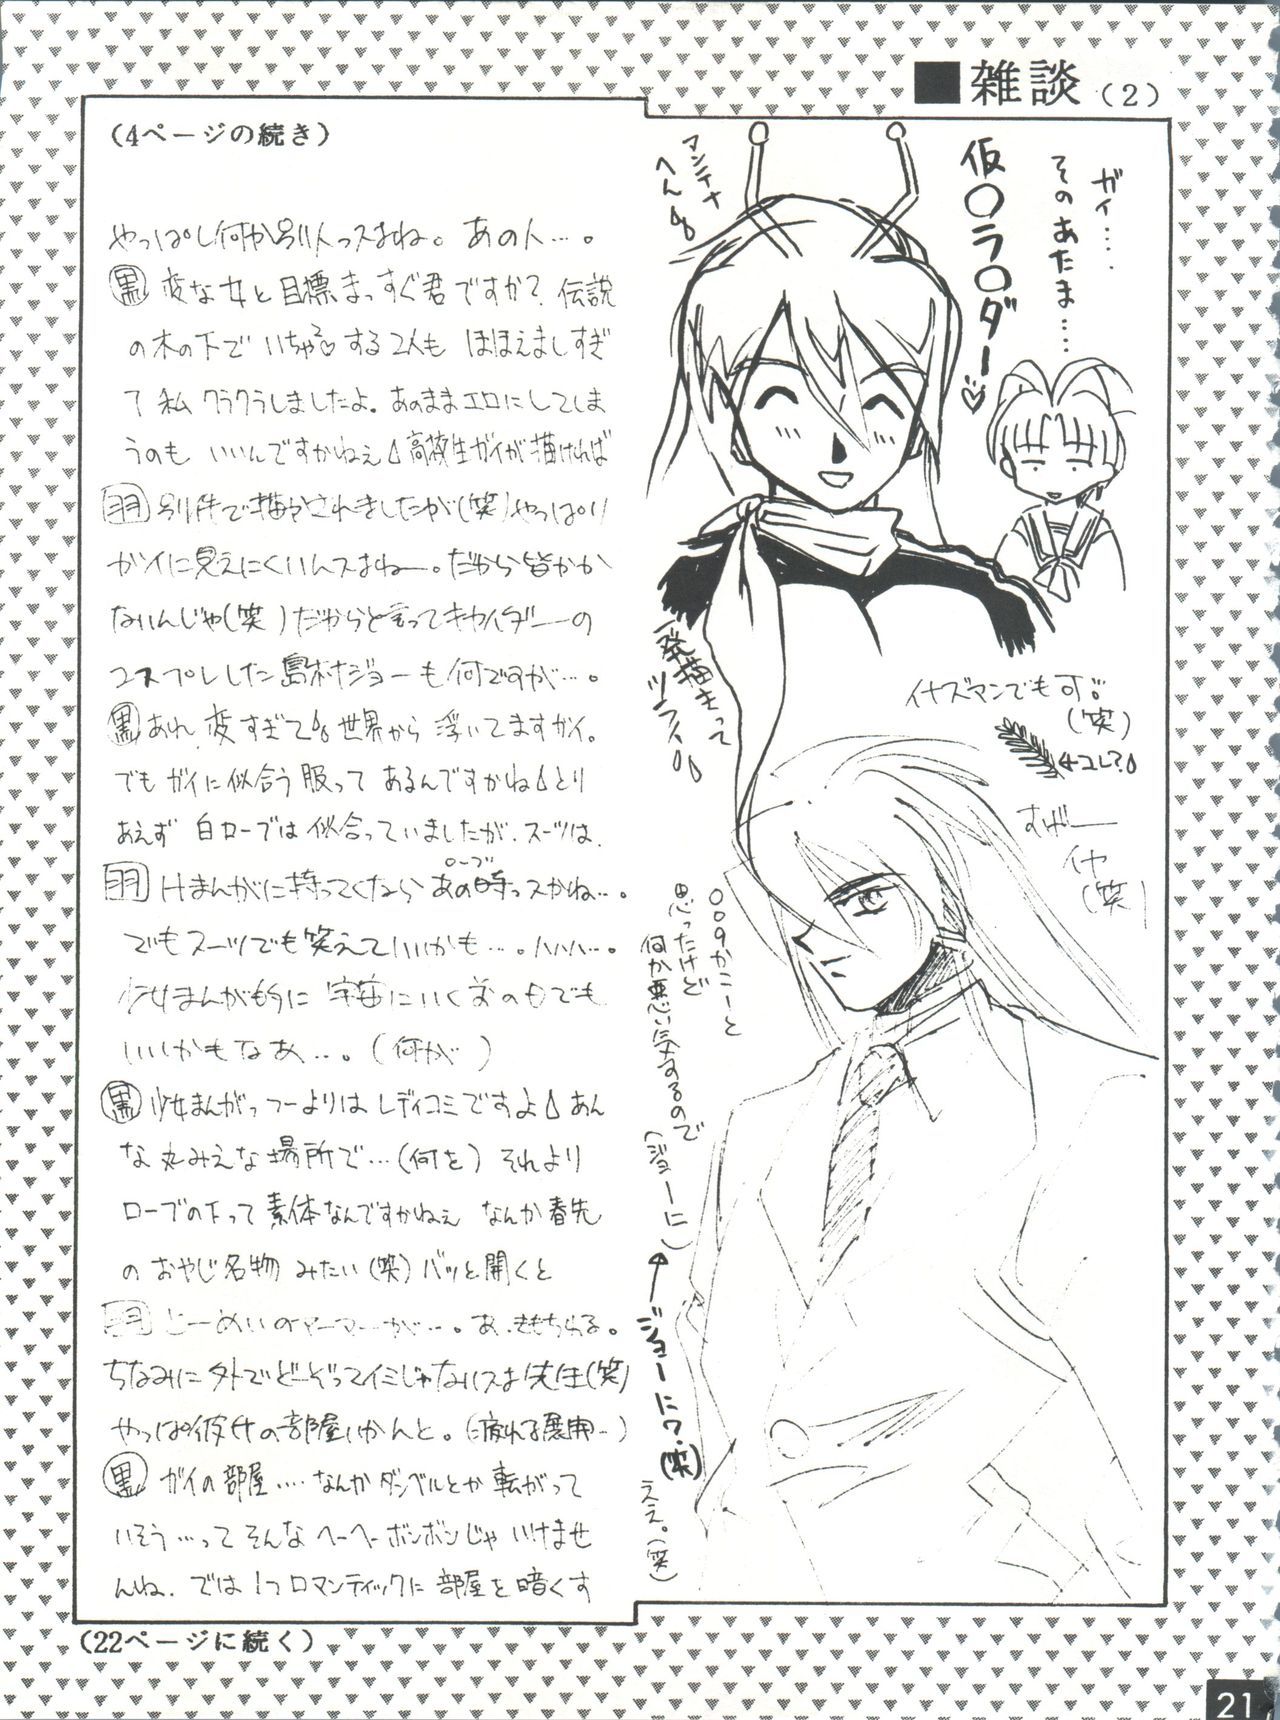 ■雑談(2)
(4ページの続き)
やっぱし何か別人っスよね。あの人…。
黒 変な女と目標まっすぐ君ですか?伝説
の木の下でいちゃ2♡する2人もほほえましすぎ
て私クラクラしましたよ。あのままエロにしてしま
うのもいいんですかねぇ 高校生ガイが描ければ
羽 別件で描かされましたが(笑)やっぱり
ガイに見えにくいんスよねー。だから皆かか
ないんじゃ(笑)だからと言ってキカイダーの
コスプレした島村ジョーも何ですが…。
黒 あれ、変すぎて 世界から浮いてますガイ。
でもガイに似合う服ってあるんですかね とり
あえず白ローブは似合っていましたが、スーツは、
羽 Hまんがに持ってくなら あの時っスかね…。
ローブ
でもスーツでも笑えていいかも…。ハハハ…。
少女まんが的に宇宙にいく前のHでも
いいかもなあ…。(何が)
黒 少女まんがっつーよりは レディコミですよ あん
な丸みえな場所で…(何を)それより
ローブの下って素体なんですかねぇ なんか春先
のおやじ名物みたい(笑)バッと開くと
羽 とーめいのアーマーが…。あ、きもちわる。
ちなみに外でどーぞってイミじゃないスよ先生(笑)
やっぱ彼女の部屋いかんと。(に疲れる展開…)
黒 ガイの部屋…. なんかダンベルとか転がって
いそう…ってそんなヘーヘーボンボンじゃいけませ
んね、では1つロマンティックに部屋を暗くす
(22ページに続く)
ガイ….
そのあたま…..
仮○ラ○ダー♡
アンテナ
へん
一発描きって
ツライ
イナズマンでも可
(笑)
コレ?
すげー
イヤ
(笑)
009かこーと
思ったけど
何か悪い気するので
(ジョーに)
←ジョーに?(笑)
ええ。(笑)
21